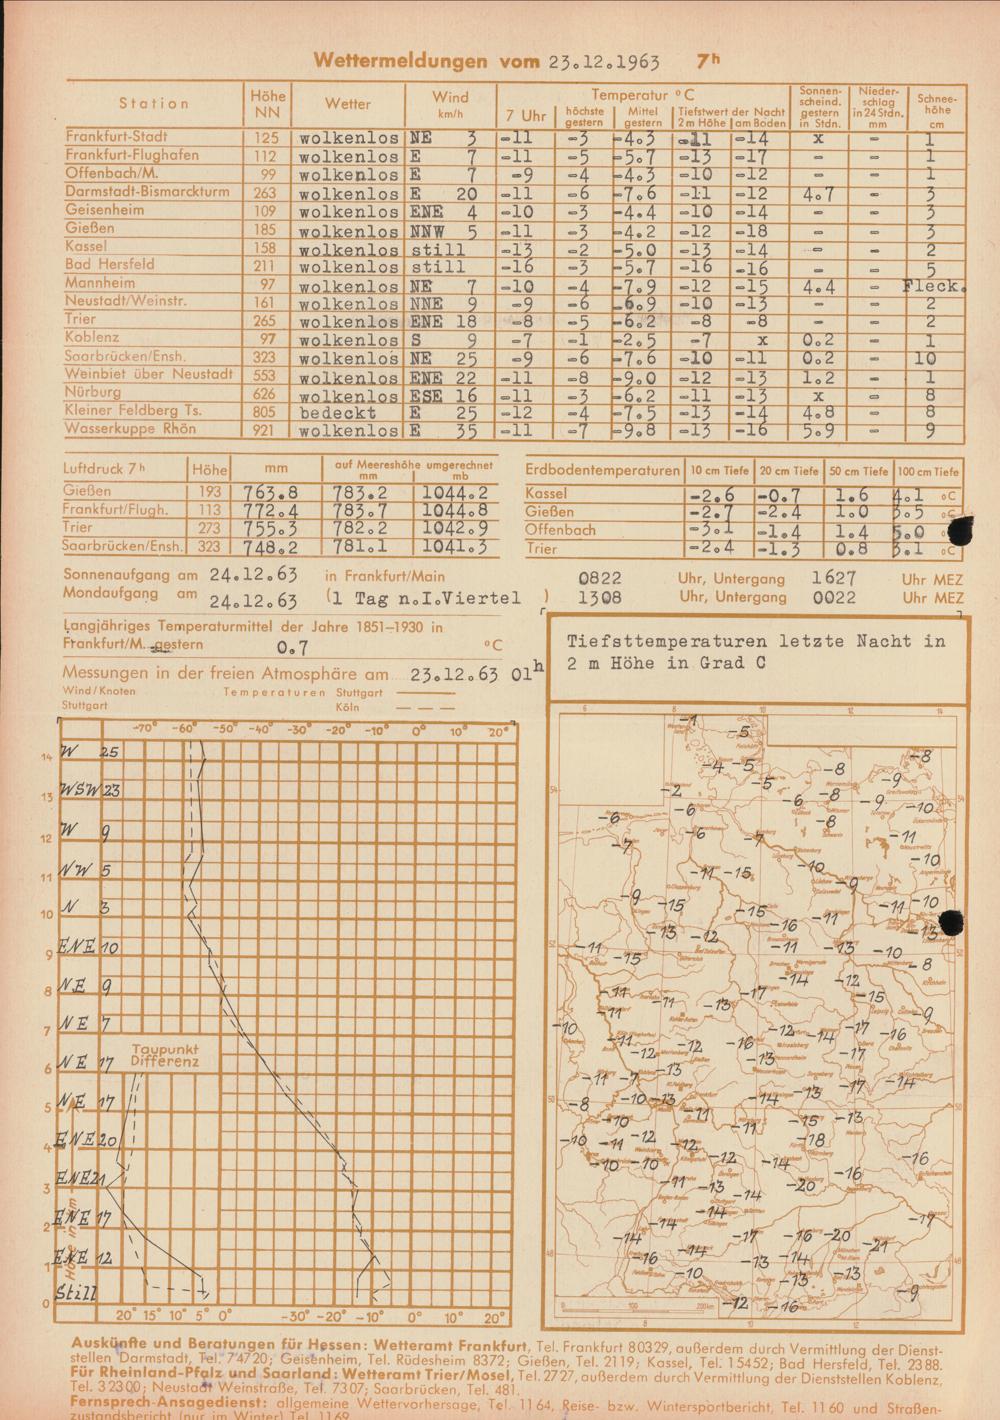 Wettermeldungen vom 23.12.1963 7h
Station Höhe NN Wetter Wind km/h Temperatur °C Sonnen-scheind. gestern in Stdn. Nieder-schlag in 24 Stdn. mm Schnee-höhe cm
7 Uhr höchste gestern Mittel gestern Tiefstwert der Nacht 2 m Höhe am Boden
Frankfurt-Stadt 125 wolkenlos NE 3 -11 -3 -4.3 -11 -14 x - 1
Frankfurt-Flughafen 112 wolkenlos E 7 -11 -5 -5.7 -13 -17 - - 1
Offenbach/M. 99 wolkenlos E 7 -9 -4 -4.3 -10 -12 - - 1
Darmstadt-Bismarckturm 263 wolkenlos E 20 -11 -6 -7.6 -11 -12 4.7 - 3
Geisenheim 109 wolkenlos ENE 4 -10 -3 -4.4 -10 -14 - - 3
Gießen 185 wolkenlos NNW 5 -11 -3 -4.2 -12 -18 - - 3
Kassel 158 wolkenlos still -13 -2 -5.0 -13 -14 - - 2
Bad Hersfeld 211 wolkenlos still -16 -3 -5.7 -16 -16 - - 5
Mannheim 97 wolkenlos NE 7 -10 -4 -7.9 -12 -15 4.4 - Fleck.
Neustadt/Weinstr. 161 wolkenlos NNE 9 -9 -6 -6.9 -10 -13 - - 2
Trier 265 wolkenlos ENE 18 -8 -5 -6.2 -8 -8 - - 2
Koblenz 97 wolkenlos S 9 -7 -1 -2.5 -7 x 0.2 - 1
Saarbrücken/Ensh. 323 wolkenlos NE 25 -9 -6 -7.6 -10 -11 0.2 - 10
Weinbiet über Neustadt 553 wolkenlos ENE 22 -11 -8 -9.0 -12 -13 1.2 - 1
Nürburg 626 wolkenlos ESE 16 -11 -3 -6.2 -11 -13 x - 8
Kleiner Feldberg Ts. 805 bedeckt E 25 -12 -4 -7.5 -13 -14 4.8 - 8
Wasserkuppe Rhön 921 wolkenlos E 35 -11 -7 -9.8 -13 -16 5.9 - 9
Luftdruck 7h Höhe mm auf Meereshöhe umgerechnet mm mb
Gießen 193 763.8 783.2 1044.2
Frankfurt/Flugh. 113 772.4 783.7 1044.8
Trier 273 755.3 782.2 1042.9
Saarbrücken/Ensh. 323 748.2 781.1 1041.3
Erdbodentemperaturen 10 cm Tiefe 20 cm Tiefe 50 cm Tiefe 100 cm Tiefe
Kassel -2.6 -0.7 1.6 4.1 °C
Gießen -2.7 -2.4 1.0 3.5 °C
Offenbach -3.1 -1.4 1.4 5.0
Trier -2.4 -1.3 0.8 3.1 °C
Sonnenaufgang am 24.12.63 in Frankfurt/Main 0822 Uhr, Untergang 1627 Uhr MEZ
Mondaufgang am 24.12.63 (1 Tag n.I.Viertel ) 1308 Uhr, Untergang 0022 Uhr MEZ
Langjähriges Temperaturmittel der Jahre 1851–1930 in
Frankfurt/M. gestern 0.7 °C
Messungen in der freien Atmosphäre am 23.12.63 01h
Wind/Knoten Temperaturen Stuttgart
Stuttgart Köln
Tiefsttemperaturen letzte Nacht in
2 m Höhe in Grad C
-70° -60° -50° -40° -30° -20° -10° 0° 10° 20°
14 W 25
13 WSW 23
12 W 9
11 NW 5
10 N 3
9 ENE 10
8 NE 9
7 NE 7
6 NE 17
Taupunkt
Differenz
5 NE 17
4 ENE 20
3 ENE 21
2 ENE 17
1 ENE 12
0 Still
Höhe in km
20° 15° 10° 5° 0° -30° -20° -10° 0° 10° 20°
6 8 10 12 14
-1
-5
-4 -5 -8 -8
-2 -5 -8 -9
-6 -6 -6 -8 -9 -10
-7 -6 -7 -11
-11 -15 -10 -9 -10
-9 -15 -15 -11 -11 -10
-13 -12 -16 -13
-11 -15 -11 -13 -10 -8
-14 -12
-11 -11 -13 -17 -15
-11 -9
-10 -11 -12 -14 -17 -16
-12 -12 -16 -13 -17
-11 -7 -13 -17 -14
-8 -10 -13 -14 -13
-10 -11 -11 -15 -13
-10 -11 -12 -12 -18
-10 -10 -12 -14 -16
-11 -13 -14 -20 -16
-14 -14 -17
-14 -17 -16 -20 -21
-16 -14 -13 -14
-10 -13 -13
-12 -16 -9
0 100 200km
Auskünfte und Beratungen für Hessen: Wetteramt Frankfurt, Tel. Frankfurt 80329, außerdem durch Vermittlung der Dienst-
stellen Darmstadt, Tel. 74720; Geisenheim, Tel. Rüdesheim 8372; Gießen, Tel. 2119; Kassel, Tel. 15452; Bad Hersfeld, Tel. 2388.
Für Rheinland-Pfalz und Saarland: Wetteramt Trier/Mosel, Tel. 2727, außerdem durch Vermittlung der Dienststellen Koblenz,
Tel. 32300; Neustadt Weinstraße, Tel. 7307; Saarbrücken, Tel. 481.
Fernsprech-Ansagedienst: allgemeine Wettervorhersage, Tel. 1164, Reise- bzw. Wintersportbericht, Tel. 1160 und Straßen-
zustandsbericht (nur im Winter) Tel. 1169.